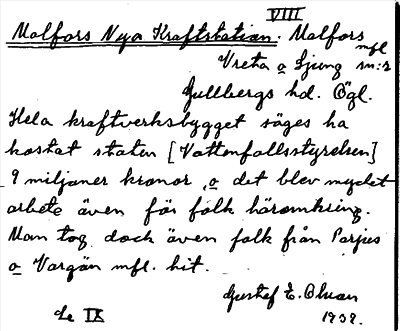 VIII
Malfors Nya Kraftstation. Malfors
mfl
Vreta o Ljung sn:r
Gullbergs hd. Ögl.
Hela kraftverksbygget säges ha
kostat staten [Vattenfallsstyrelsen]
9 miljoner kronor, o det blev mycket
arbete även för folk häromkring.
Man tog dock även folk från Porjus
o Vargön mfl. hit.
Gustaf E. Olsson
1939.
de IX